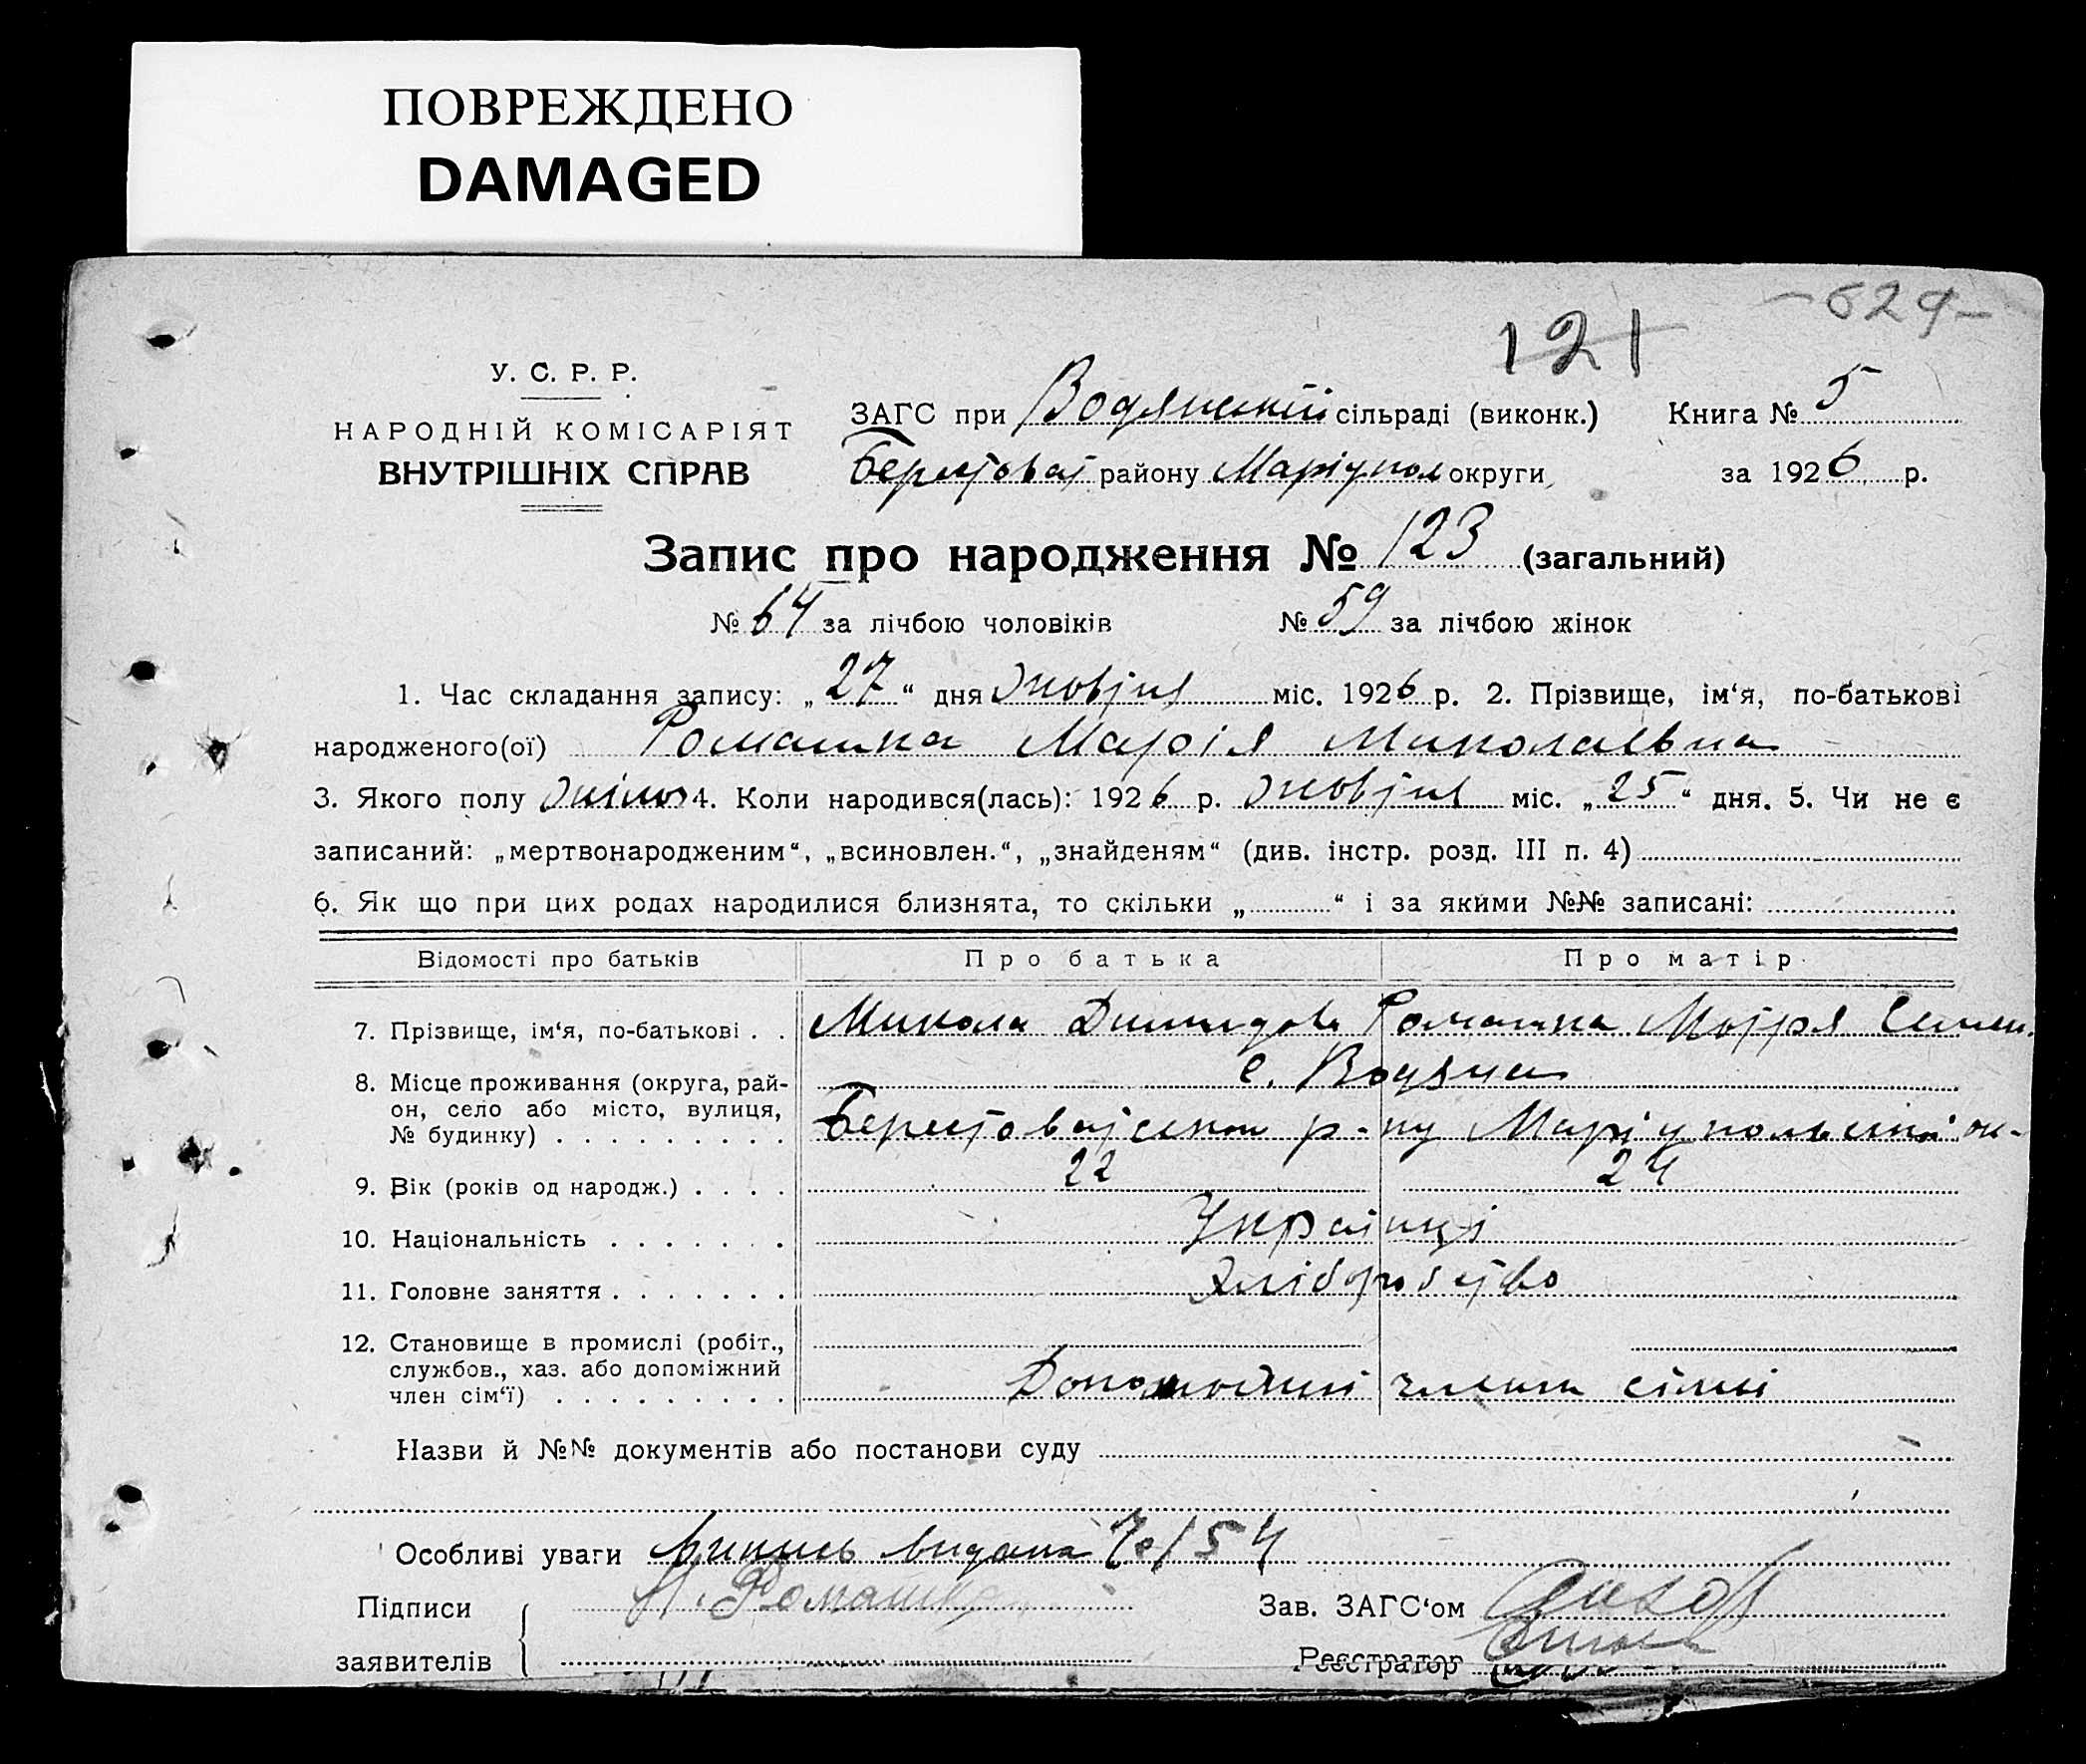 ПОВРЕЖДЕНО
DAMAGED
-629-
121
У. С. Р. Р.
НАРОДНІЙ КОМІСАРІЯТ
ВНУТРІШНІХ СПРАВ
ЗАГС при Водянській сільраді (виконк.) Книга № 5
Берестоват району Маріупол округи за 1926 р.
Запис про народження № 123 (загальний)
№ 64 за лічбою чоловіків № 59 за лічбою жінок
1. Час складання запису: „27“ дня Жовтня міс. 1926 р. 2. Прізвище, ім‘я, по-батькові
народженого(ої) Ромашка Марія Миколаївна
3. Якого полу Жіноч 4. Коли народився(лась): 1926 р. Жовтня міс. „25“ дня. 5. Чи не є
записаний: „мертвонародженим“, „всиновлен.“, „знайденям“ (див. інстр. розд. III п. 4)
6. Як що при цих родах народилися близнята, то скільки „ “ і за якими №№ записані:
Відомості про батьків Про батька Про матір
7. Прізвище, ім‘я, по-батькові . . Микола Ромашка Мотря Семен.
8. Місце проживання (округа, рай- с. Водяна
он, село або місто, вулиця, Берестоватськом р-ну Маріупольської ок-
№ будинку) . . . . . . . . .
9. Вік (років од народж.) . . . . 22 24
10. Національність . . . . . . . Українці
11. Головне заняття . . . . . . . Хліборобство
12. Становище в промислі (робіт.,
службов., хаз. або допоміжний Допоможні члени сімьї
член сім‘ї) . . . . . . . . .
Назви й №№ документів або постанови суду
Особливі уваги Випись видана № 154
Підписи Ромашка Зав. ЗАГС‘ом
заявителів Реєстратор